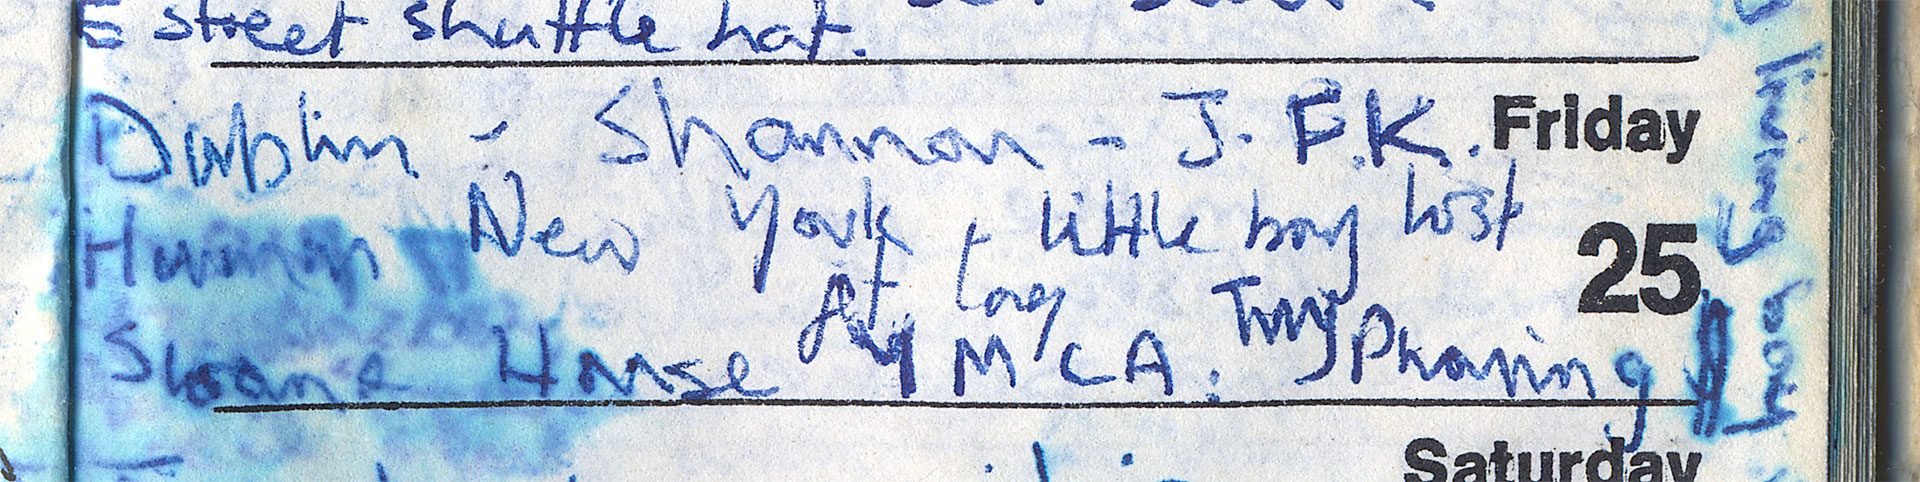 E street shuttle hat.
Dublin - Shannon - J.F.K. Friday
New York, little boy lost
25
At long
Sloane House YMCA. Try Phoning
Saturday